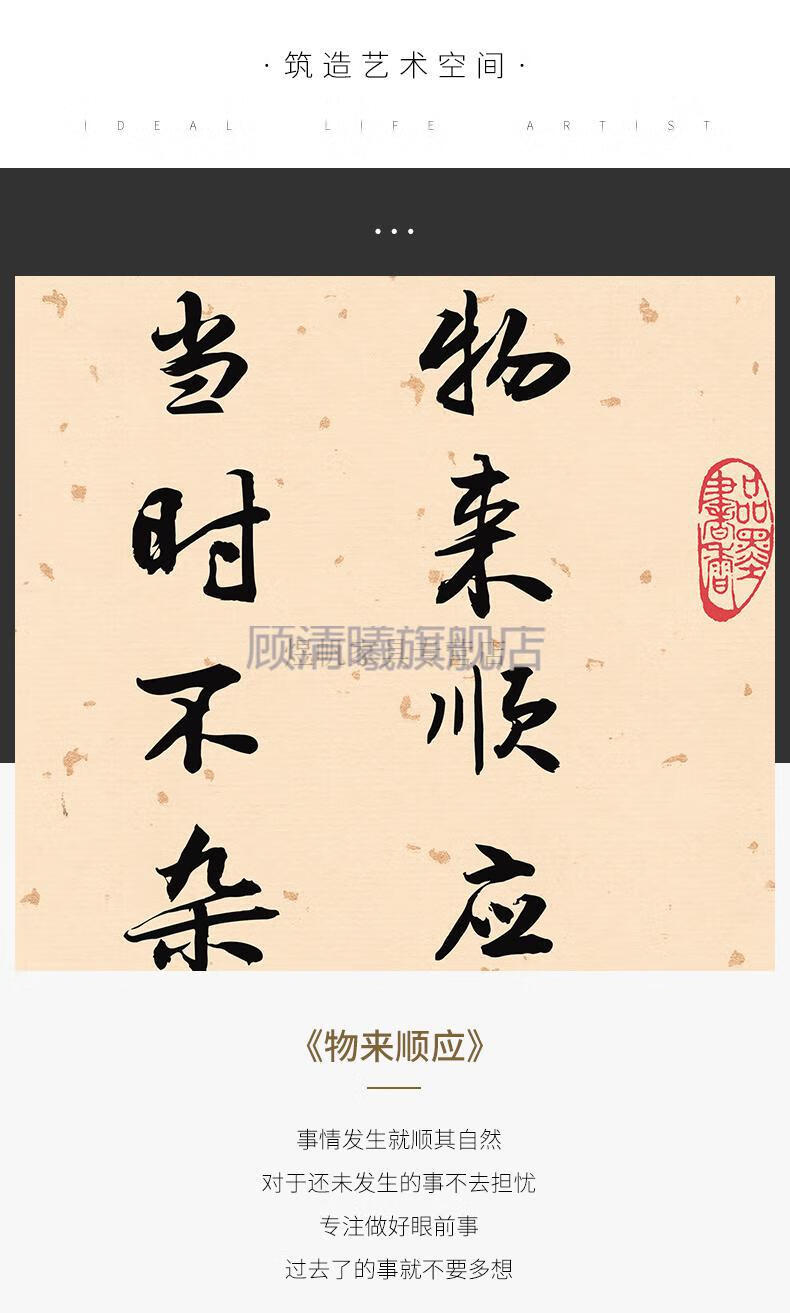 ·筑造艺术空间·
IDEAL LIFE ARTIST
...
物来顺应
当时不杂
品墨書香
顾清曦旗舰店
《物来顺应》
事情发生就顺其自然
对于还未发生的事不去担忧
专注做好眼前事
过去了的事就不要多想